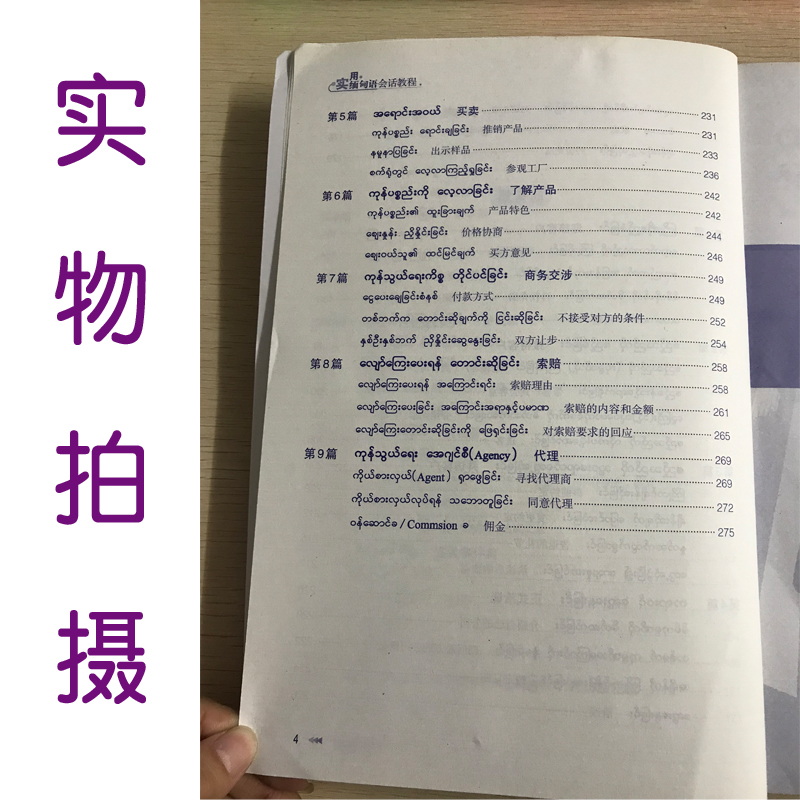 实
物
拍
摄
实用缅甸语会话教程
第5篇 အရောင်းအဝယ် 买卖 231
ကုန်ပစ္စည်း ရောင်းချခြင်း 推销产品 231
နမူနာပြခြင်း 出示样品 233
စက်ရုံတွင် လေ့လာကြည့်ရှုခြင်း 参观工厂 236
第6篇 ကုန်ပစ္စည်းကို လေ့လာခြင်း 了解产品 242
ကုန်ပစ္စည်း၏ ထူးခြားချက် 产品特色 242
ဈေးနှုန်း ညှိနှိုင်းခြင်း 价格协商 244
ဈေးဝယ်သူ၏ ထင်မြင်ချက် 买方意见 246
第7篇 ကုန်သွယ်ရေးကိစ္စ တိုင်ပင်ခြင်း 商务交涉 249
ငွေပေးချေခြင်းစံနစ် 付款方式 249
တစ်ဘက်က တောင်းဆိုချက်ကို ငြင်းဆိုခြင်း 不接受对方的条件 252
နှစ်ဦးနှစ်ဘက် ညှိနှိုင်းဆွေးနွေးခြင်း 双方让步 254
第8篇 လျော်ကြေးပေးရန် တောင်းဆိုခြင်း 索赔 258
လျော်ကြေးပေးရန် အကြောင်းရင်း 索赔理由 258
လျော်ကြေးပေးခြင်း အကြောင်းအရာနှင့်ပမာဏ 索赔的内容和金额 261
လျော်ကြေးတောင်းဆိုခြင်းကို ဖြေရှင်းခြင်း 对索赔要求的回应 265
第9篇 ကုန်သွယ်ရေး အေဂျင်စီ(Agency) 代理 269
ကိုယ်စားလှယ်(Agent) ရှာဖွေခြင်း 寻找代理商 269
ကိုယ်စားလှယ်လုပ်ရန် သဘောတူခြင်း 同意代理 272
ဝန်ဆောင်ခ/Commsion ခ 佣金 275
4